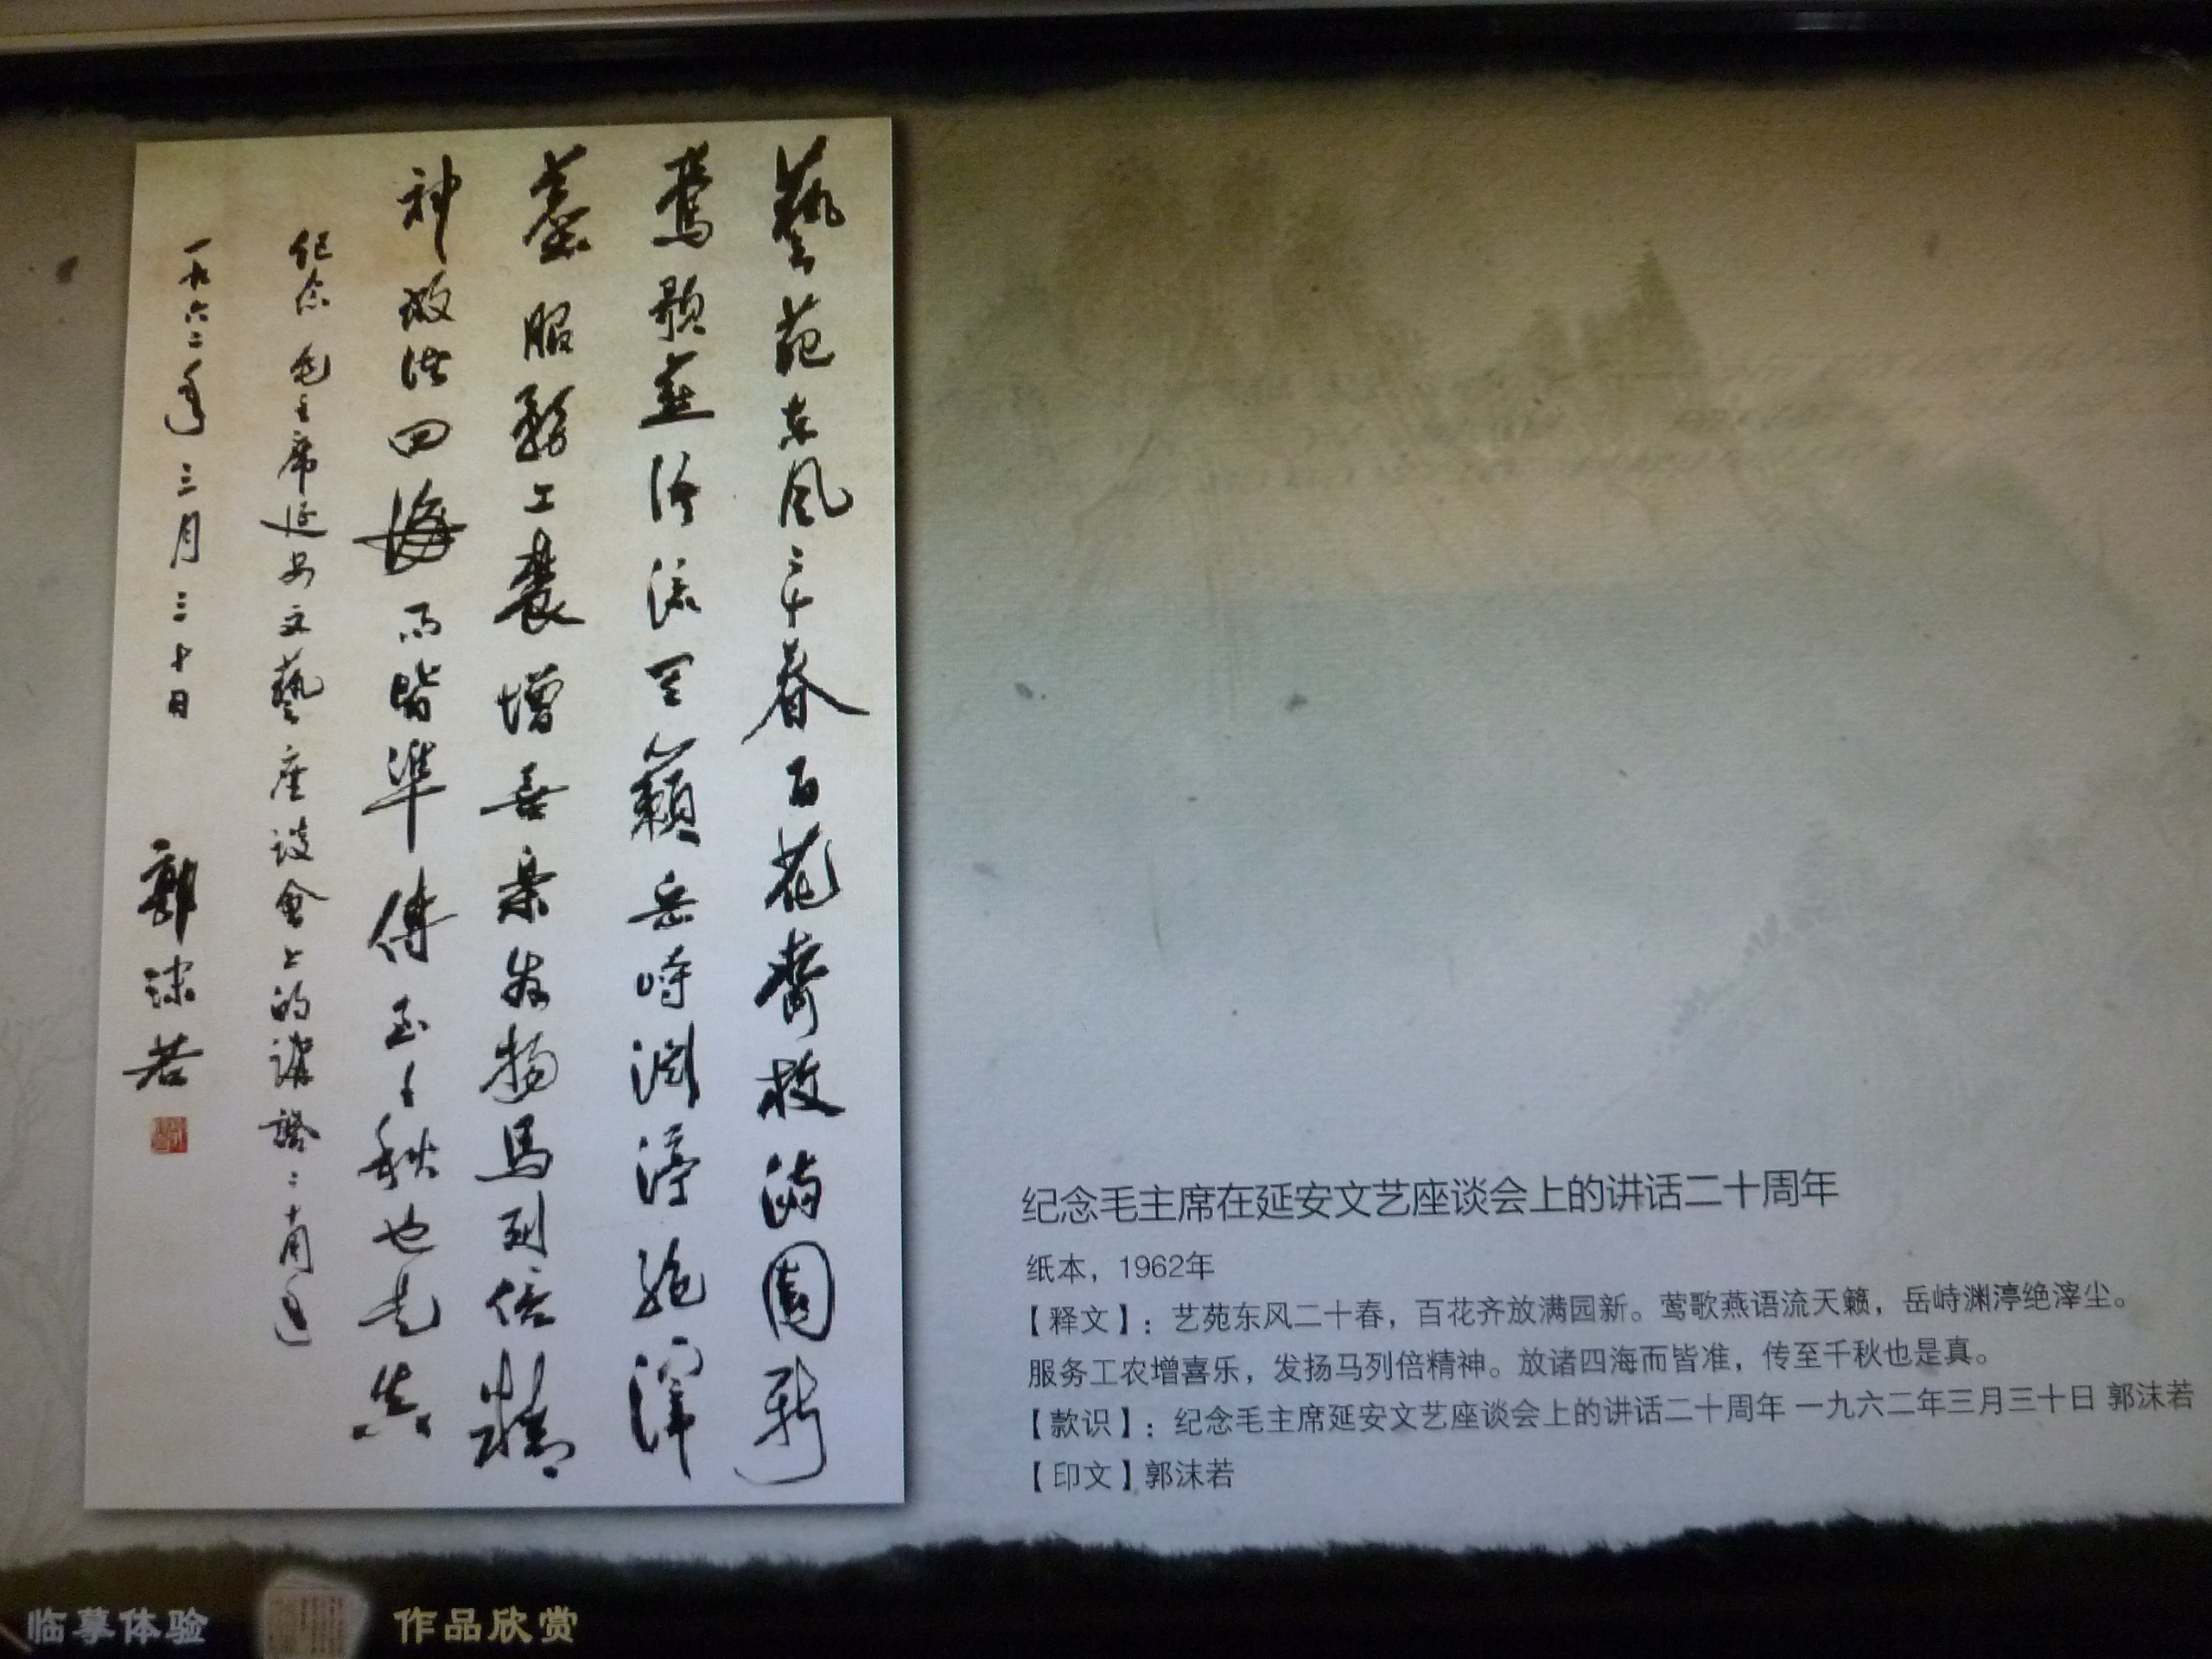 藝苑东风二十春百花齊放满園新
鶯歌燕语流天籟岳峙渊渟絶滓
塵服務工農增喜樂发揚馬列倍精
神放诸四海而皆準傳至千秋也是真
纪念毛主席延安文藝座谈會上的講話二十周年
一九六二年三月三十日 郭沫若
纪念毛主席在延安文艺座谈会上的讲话二十周年
纸本，1962年
【释文】：艺苑东风二十春，百花齐放满园新。莺歌燕语流天籁，岳峙渊渟绝滓尘。
服务工农增喜乐，发扬马列倍精神。放诸四海而皆准，传至千秋也是真。
【款识】：纪念毛主席延安文艺座谈会上的讲话二十周年 一九六二年三月三十日 郭沫若
【印文】郭沫若
临摹体验
作品欣赏